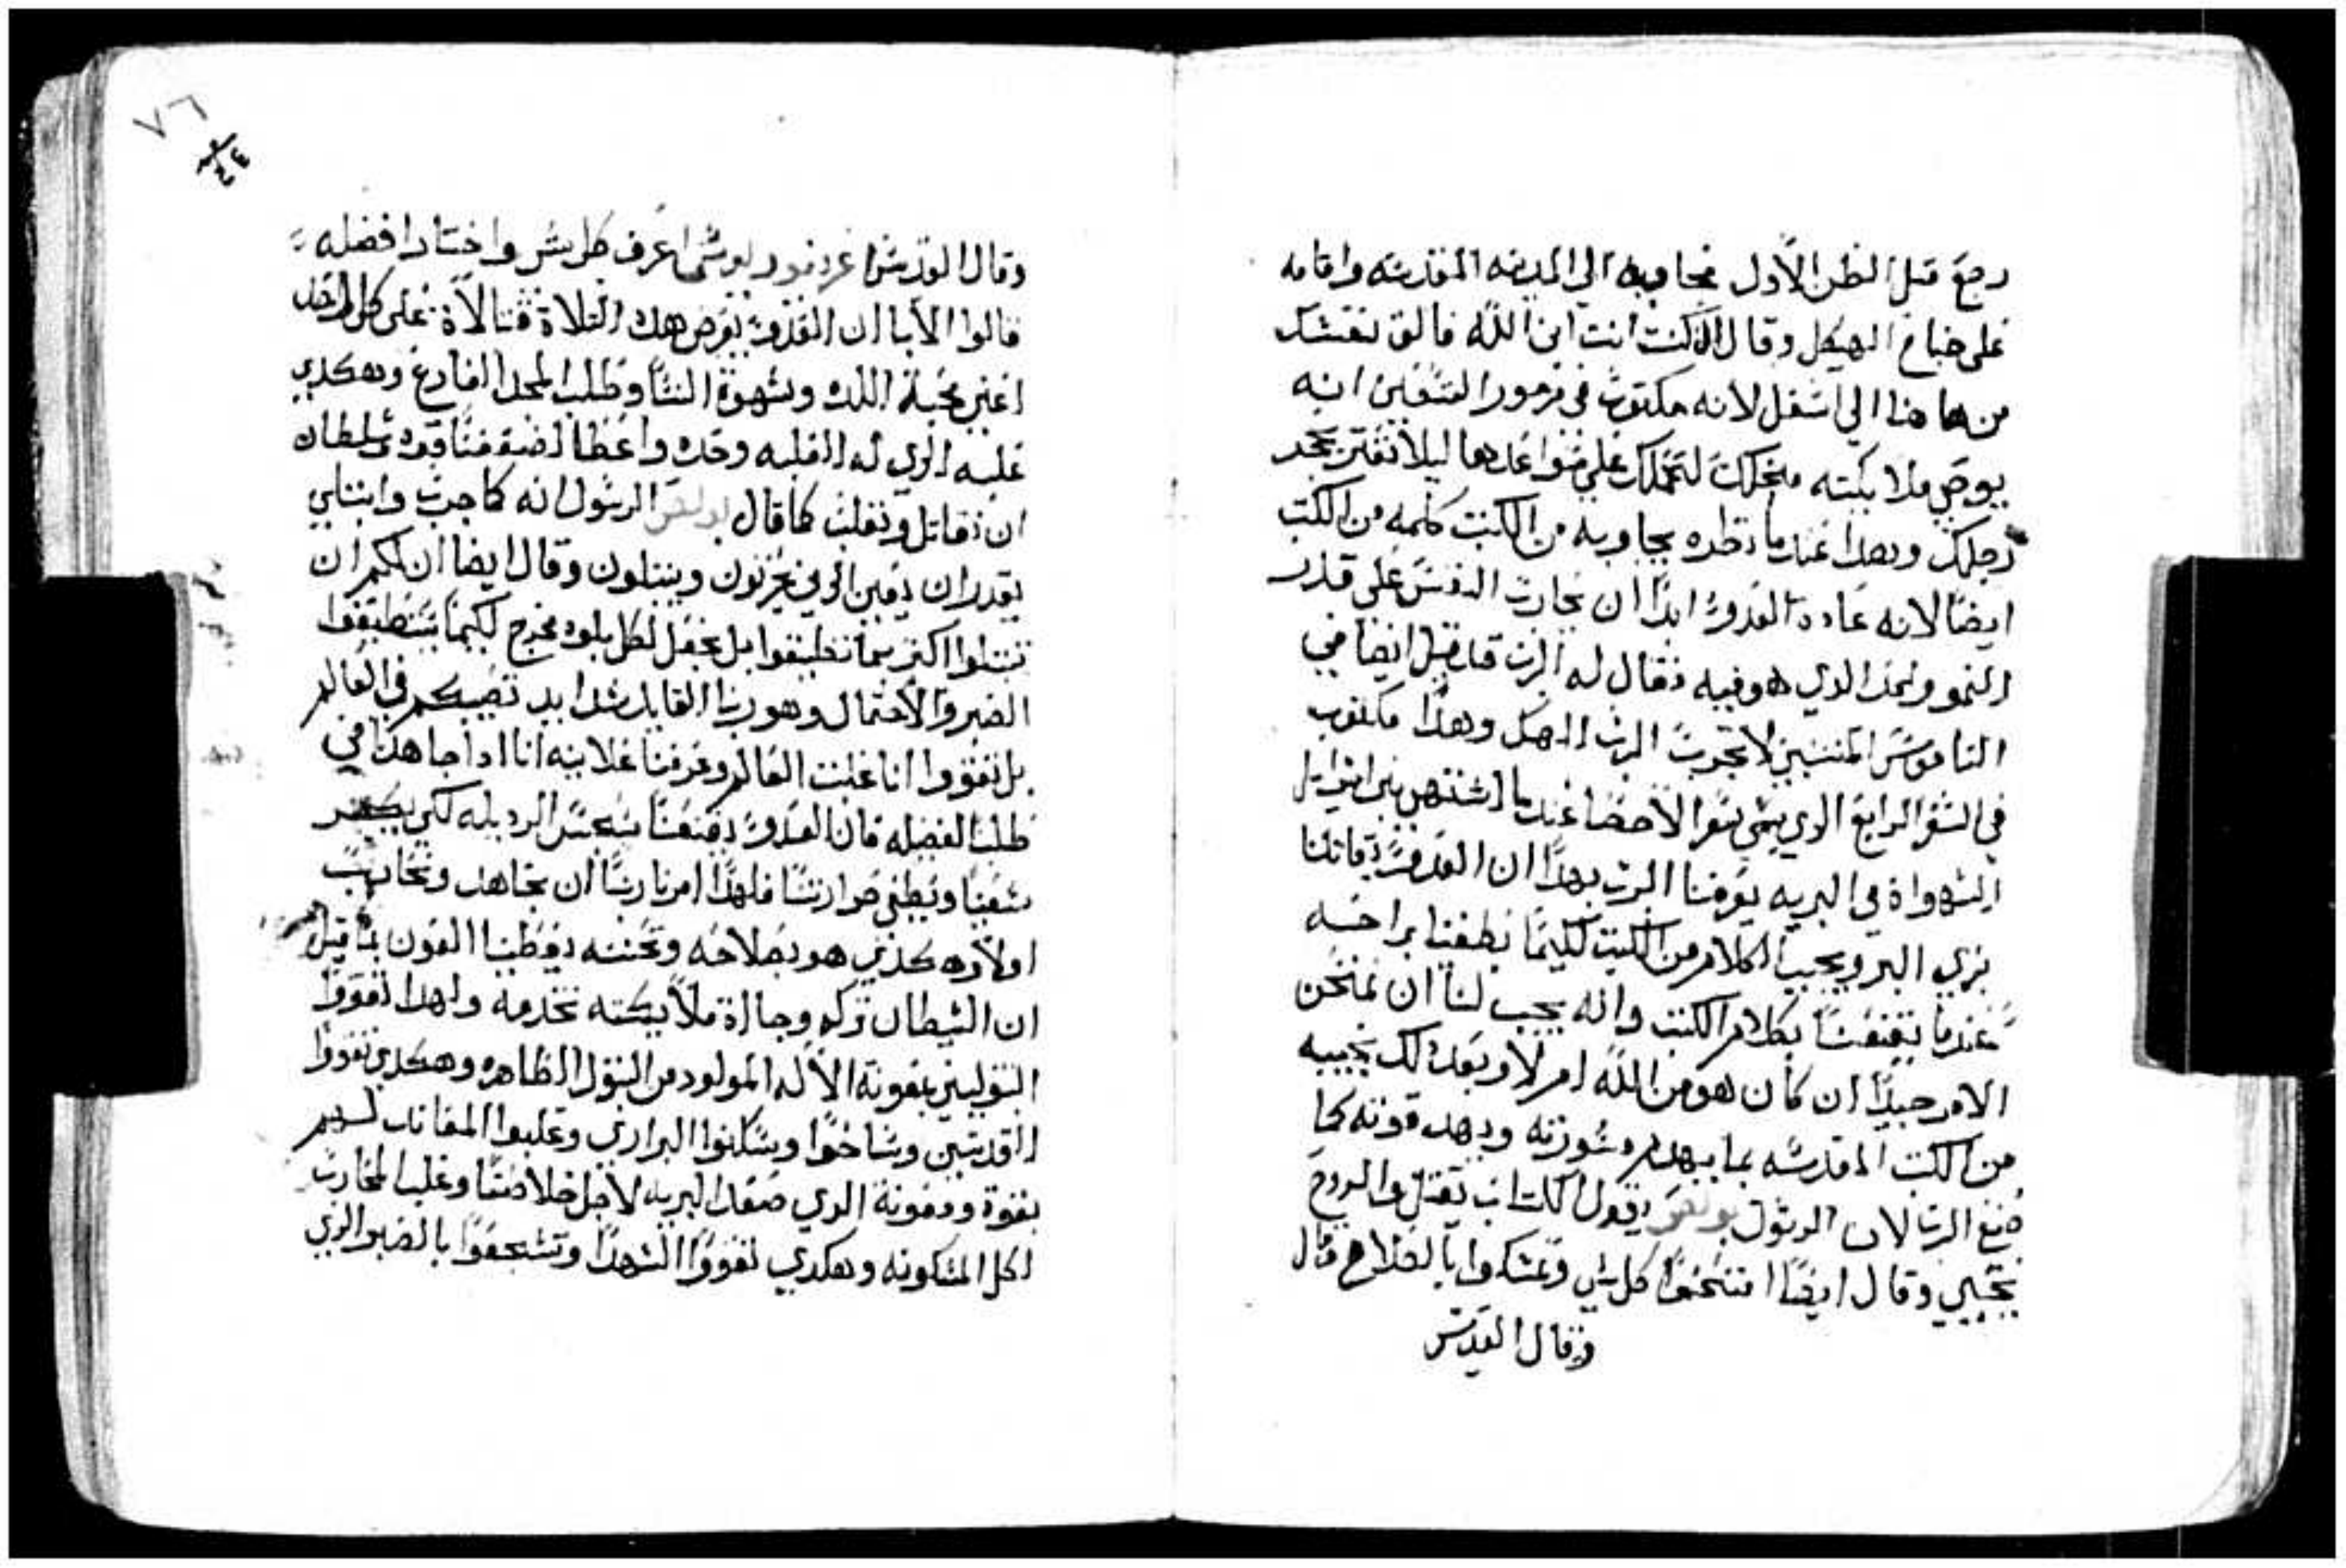 رجع قبل الظن الاول مجاوبه الي المدينه المقدسه واقامه
على جناح الهيكل وقال ان كنت انت ابن الله فالق نفسك
من هاهنا الي اسفل لانه مكتوب في مزمور التسعين انه
يوصي ملايكته من اجلك على ايديها ليلا تعتر بحجر
رجلك وبهدا عندما نطره يجاوبه من الكتب كلمه من الكتب
ايضا لانه عادة العدو ابدا ان يحارب النفس على قدر
النمو والحد الدي هو فيه فقال له الرب قد قيل ايضا في
الناموس لا تجرب الرب الهك وهدا مكتوب
في السفر الرابع الدي يسمي سفر الاحصا عندما اشتهي بني اسرايل
الشهواة في البريه يعرفنا الرب بهدا ان العدو يقاتلنا
بزي البر ويجيب الكلام من الكتب لكيما
عندما يقنعنا بكلام الكتب وانه يجب لنا ان نمتحن
الامر جيدا ان كان هو من الله ام لا وبعد دلك نجيبه
من الكتب المقدسه بما يهدم مشورته ويهد قوته كما
صنع الرب لان الرسول بولص يقول الكتاب يقتل والروح
يحيي وقال ايضا امتحنوا كل شي وتمسكوا بالصلاح قال
وقال القديس
٧٦
وقال القديس اغريغوريوس اعرف كل شي واختار افضله
قالوا الابا ان العدو يعرض هده التلاة قتالاة على كل احد
اعني محبة اللده وشهوة النسا وطلب المجد الفارغ وهكدي
غلبه الرب له الغلبه وحده واعطا لضعفنا قوه وسلطان
ان نقاتل ونغلب كما قال بولص الرسول انه كما جرب وابتلي
يقدر ان يعين الدين يحزنون ويبتلون وقال ايضا ان
تبتلوا اكتر مما تطيقوا بل يجعل لكل بلوه مخرج لكيما تستطيعوا
الصبر والاحتمال وهو ربنا القايل شدايد تصيبكم في العالم
بل تقووا انا غلبت العالم وعرفنا علانيه اننا ادا جاهدنا في
طلب الفضله فان العدو الرديله لكي
سعينا ويطفي حرارتنا فلهدا امرنا ربنا ان نجاهد ونحارب
اولاده كدي هو بصلاحه وتحننه يعطينا العون
ان الشيطان تركه وجااة ملايكته تخدمه ولهدا تقووا
البتوليين بمعونة الاله المولود من البتول الطاهره وهكدي تقووا
القديسين وشاخوا وسكنوا البراري وغلبوا المقاتل لهم
بقوة ومعونة الدي صعد البريه لاجل خلاصنا وغلب المحارب
لكل المسكونه وهكدي تقووا الشهدا وتشجعوا بالصبر الدي